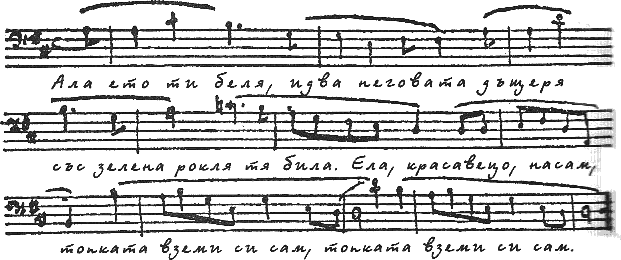 Ала ето ти беля, идва неговата дъщеря
със зелена рокля тя била. Ела, красавецо, насам,
топката вземи си сам, топката вземи си сам.